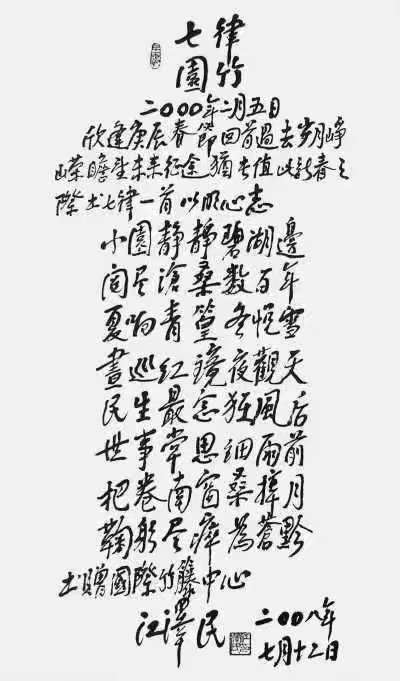 七律
園竹
二000年二月五日
欣逢庚辰春節回首過去岁月峥
嵘瞻望未来征途猶长值此新春之
際书七律一首以明心志
小園靜靜碧湖邊
阅尽滄桑数百年
夏响青篁冬悅雪
晝巡红鏡夜觀天
民生最念狂風后
世事常思细雨前
把卷南窗桑梓月
鞠躬尽瘁為蒼黔
书贈國際竹藤中心
江澤民
二00八年
七月十二日